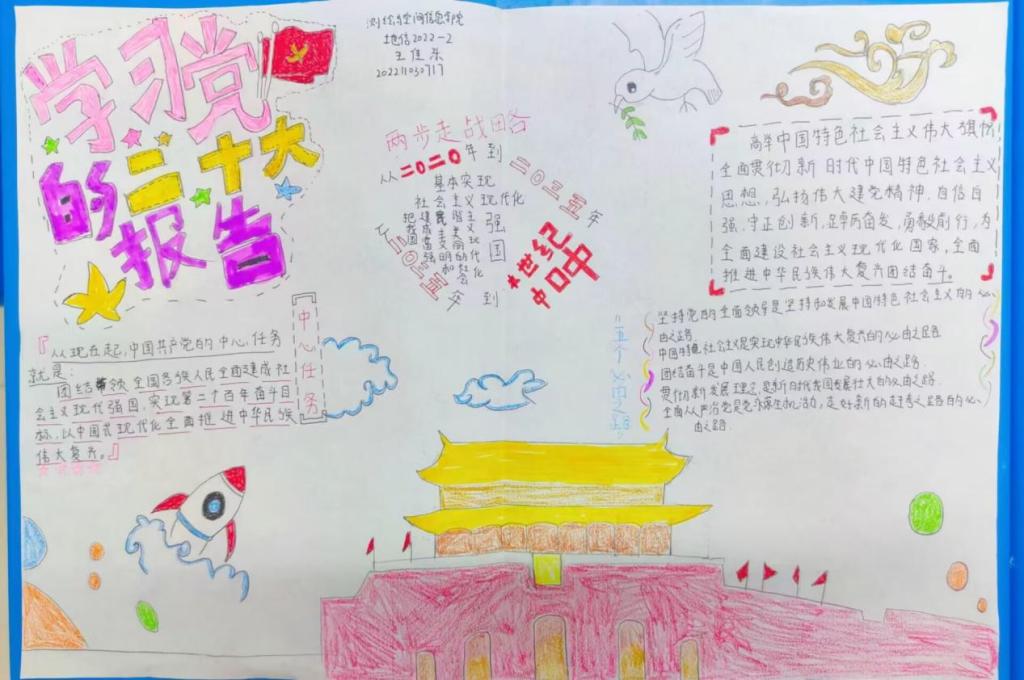 学习党
的二十大
报告
测绘与空间信息学院
地信2022-2
202211030717
两步走战略
从二〇二〇年到
二〇三五年
基本实现
社会主义现代化
从二〇三五年到
本世纪中叶
把我国建成
富强民主文明和谐
的社会主义现代化
强国
高举中国特色社会主义伟大旗帜,
全面贯彻新时代中国特色社会主义
思想,弘扬伟大建党精神,自信自
强、守正创新,踔厉奋发、勇毅前行,为
全面建设社会主义现代化国家,全面
推进中华民族伟大复兴团结奋斗。
【中心任务】
『从现在起,中国共产党的中心任务
就是:
团结带领全国各族人民全面建成社
会主义现代强国,实现第二个百年奋斗目
标,以中国式现代化全面推进中华民族
伟大复兴。』
"五个必由之路"
坚持党的全面领导是坚持和发展中国特色社会主义的必
由之路.
中国特色社会主义是实现中华民族伟大复兴的必由之路
团结奋斗是中国人民创造历史伟业的必由之路.
贯彻新发展理念是新时代我国发展壮大的必由之路.
全面从严治党是党永葆生机活力,走好新的赶考之路的必
由之路.